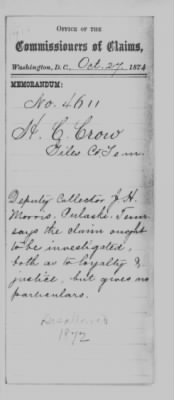 OFFICE OF THE
Commissioners of Claims,
Washington, D. C., Oct. 27, 1874
MEMORANDUM:
No. 4611
H. C. Crow
Giles Co Tenn.
Deputy Collector J. H.
Morris, Pulaski, Tenn
says the claim ought
to be investigated,
both as to loyalty &
justice, but gives no
particulars.
1872